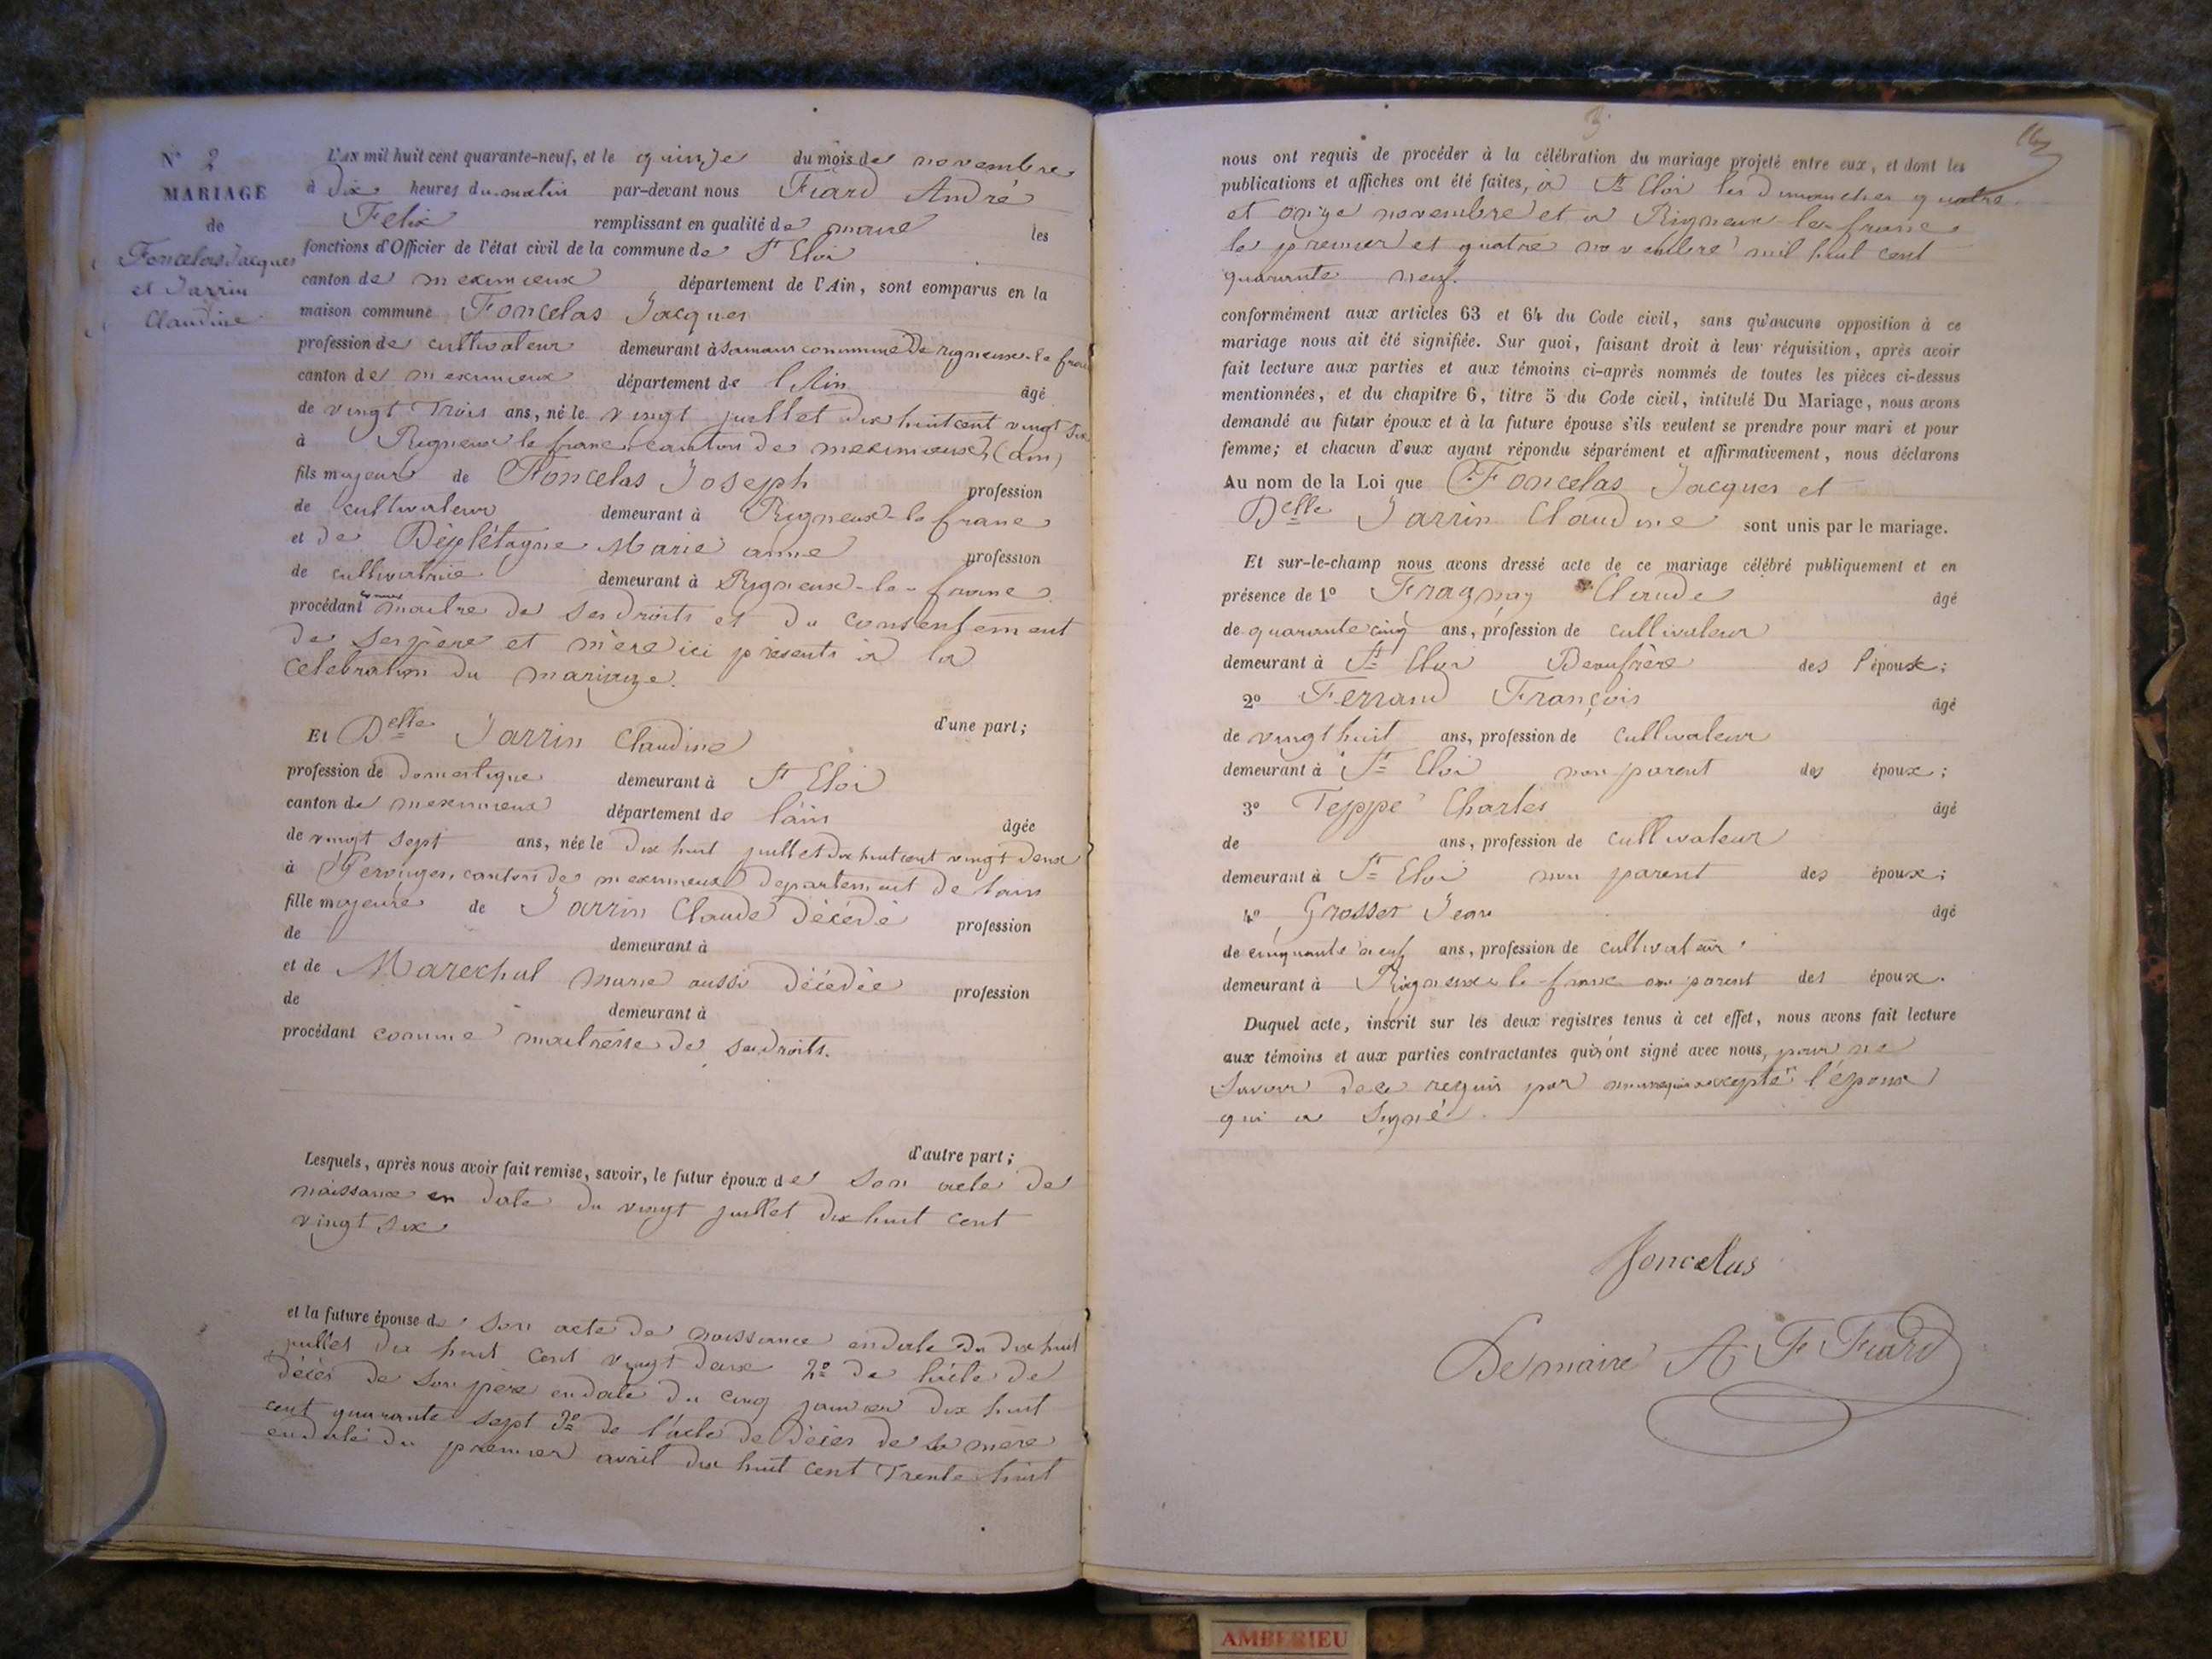 N° 2
MARIAGE
de
Foncelas Jacques
et Jarrin
Claudine
L'AN mil huit cent quarante-neuf, et le quinze du mois de novembre
à dix heures du matin par-devant nous Fiard André
Felix remplissant en qualité de maire les
fonctions d'Officier de l'état civil de la commune de St Eloi
canton de meximieux département de l'Ain, sont comparus en la
maison commune Foncelas Jacques
profession de cultivateur demeurant à Samans commune De rigneux-le franc
canton de meximieux département de l'Ain âgé
de vingt Trois ans, né le vingt juillet dix huit cent vingt six
à Rigneux le franc canton de meximieux (ain)
fils majeur de Foncelas Joseph profession
de cultivateur demeurant à Rigneux-le franc
et de Marie anne profession
de cultivatrice demeurant à Rigneux-le-franc
procédant comme maitre de ses droits et du consentement
de ses père et mère ici présents à la
celebration du mariage.
d'une part;
Et Delle Jarrin Claudine
profession de domestique demeurant à St Eloi
canton de meximieux département de l'ain âgée
de vingt sept ans, née le dix huit juillet dix huit cent vingt deux
à Perouges, canton de meximieux departement de l'ain
fille majeure de Jarrin Claude décédé profession
de demeurant à
et de Marechal marie aussi décédée profession
de demeurant à
procédant comme maitresse de ses droits.
d'autre part;
Lesquels, après nous avoir fait remise, savoir, le futur époux de son acte de
naissance en date du vingt juillet dix huit cent
vingt six
et la future épouse de son acte de naissance en date du dix huit
juillet dix huit cent vingt deux 2° de l'acte de
décès de son père en date du cinq janvier dix huit
cent quarante sept 3° de l'acte de décès de sa mère
en date du premier avril dix huit cent Trente huit
3
nous ont requis de procéder à la célébration du mariage projeté entre eux, et dont les
publications et affiches ont été faites, à St Eloi les dimanches quatre
et onze novembre et à Rigneux-le-franc
le premier et quatre novembre mil huit cent
quarante neuf.
conformément aux articles 63 et 64 du Code civil, sans qu'aucune opposition à ce
mariage nous ait été signifiée. Sur quoi, faisant droit à leur réquisition, après avoir
fait lecture aux parties et aux témoins ci-après nommés de toutes les pièces ci-dessus
mentionnées, et du chapitre 6, titre 5 du Code civil, intitulé Du Mariage, nous avons
demandé au futur époux et à la future épouse s'ils veulent se prendre pour mari et pour
femme; et chacun d'eux ayant répondu séparément et affirmativement, nous déclarons
Au nom de la Loi que Foncelas Jacques et
Delle Jarrin Claudine sont unis par le mariage.
Et sur-le-champ nous avons dressé acte de ce mariage célébré publiquement et en
présence de 1° Fragnay Claude âgé
de quarante cinq ans, profession de cultivateur
demeurant à St Eloi Beaufrère des l'époux;
2° Ferrand François âgé
de vingt huit ans, profession de cultivateur
demeurant à St Eloi non parent des époux;
3° Teppe Charles âgé
de ans, profession de cultivateur
demeurant à St Eloi non parent des époux;
4° Grosset Jean âgé
de cinquante neuf ans, profession de cultivateur
demeurant à Rigneux le-franc non parent des époux.
Duquel acte, inscrit sur les deux registres tenus à cet effet, nous avons fait lecture
aux témoins et aux parties contractantes qui ont signé avec nous, pour ne
Savoir de ce requis par excepté l'époux
qui a signé.
foncelas
Le maire A F Fiard
AMBERIEU